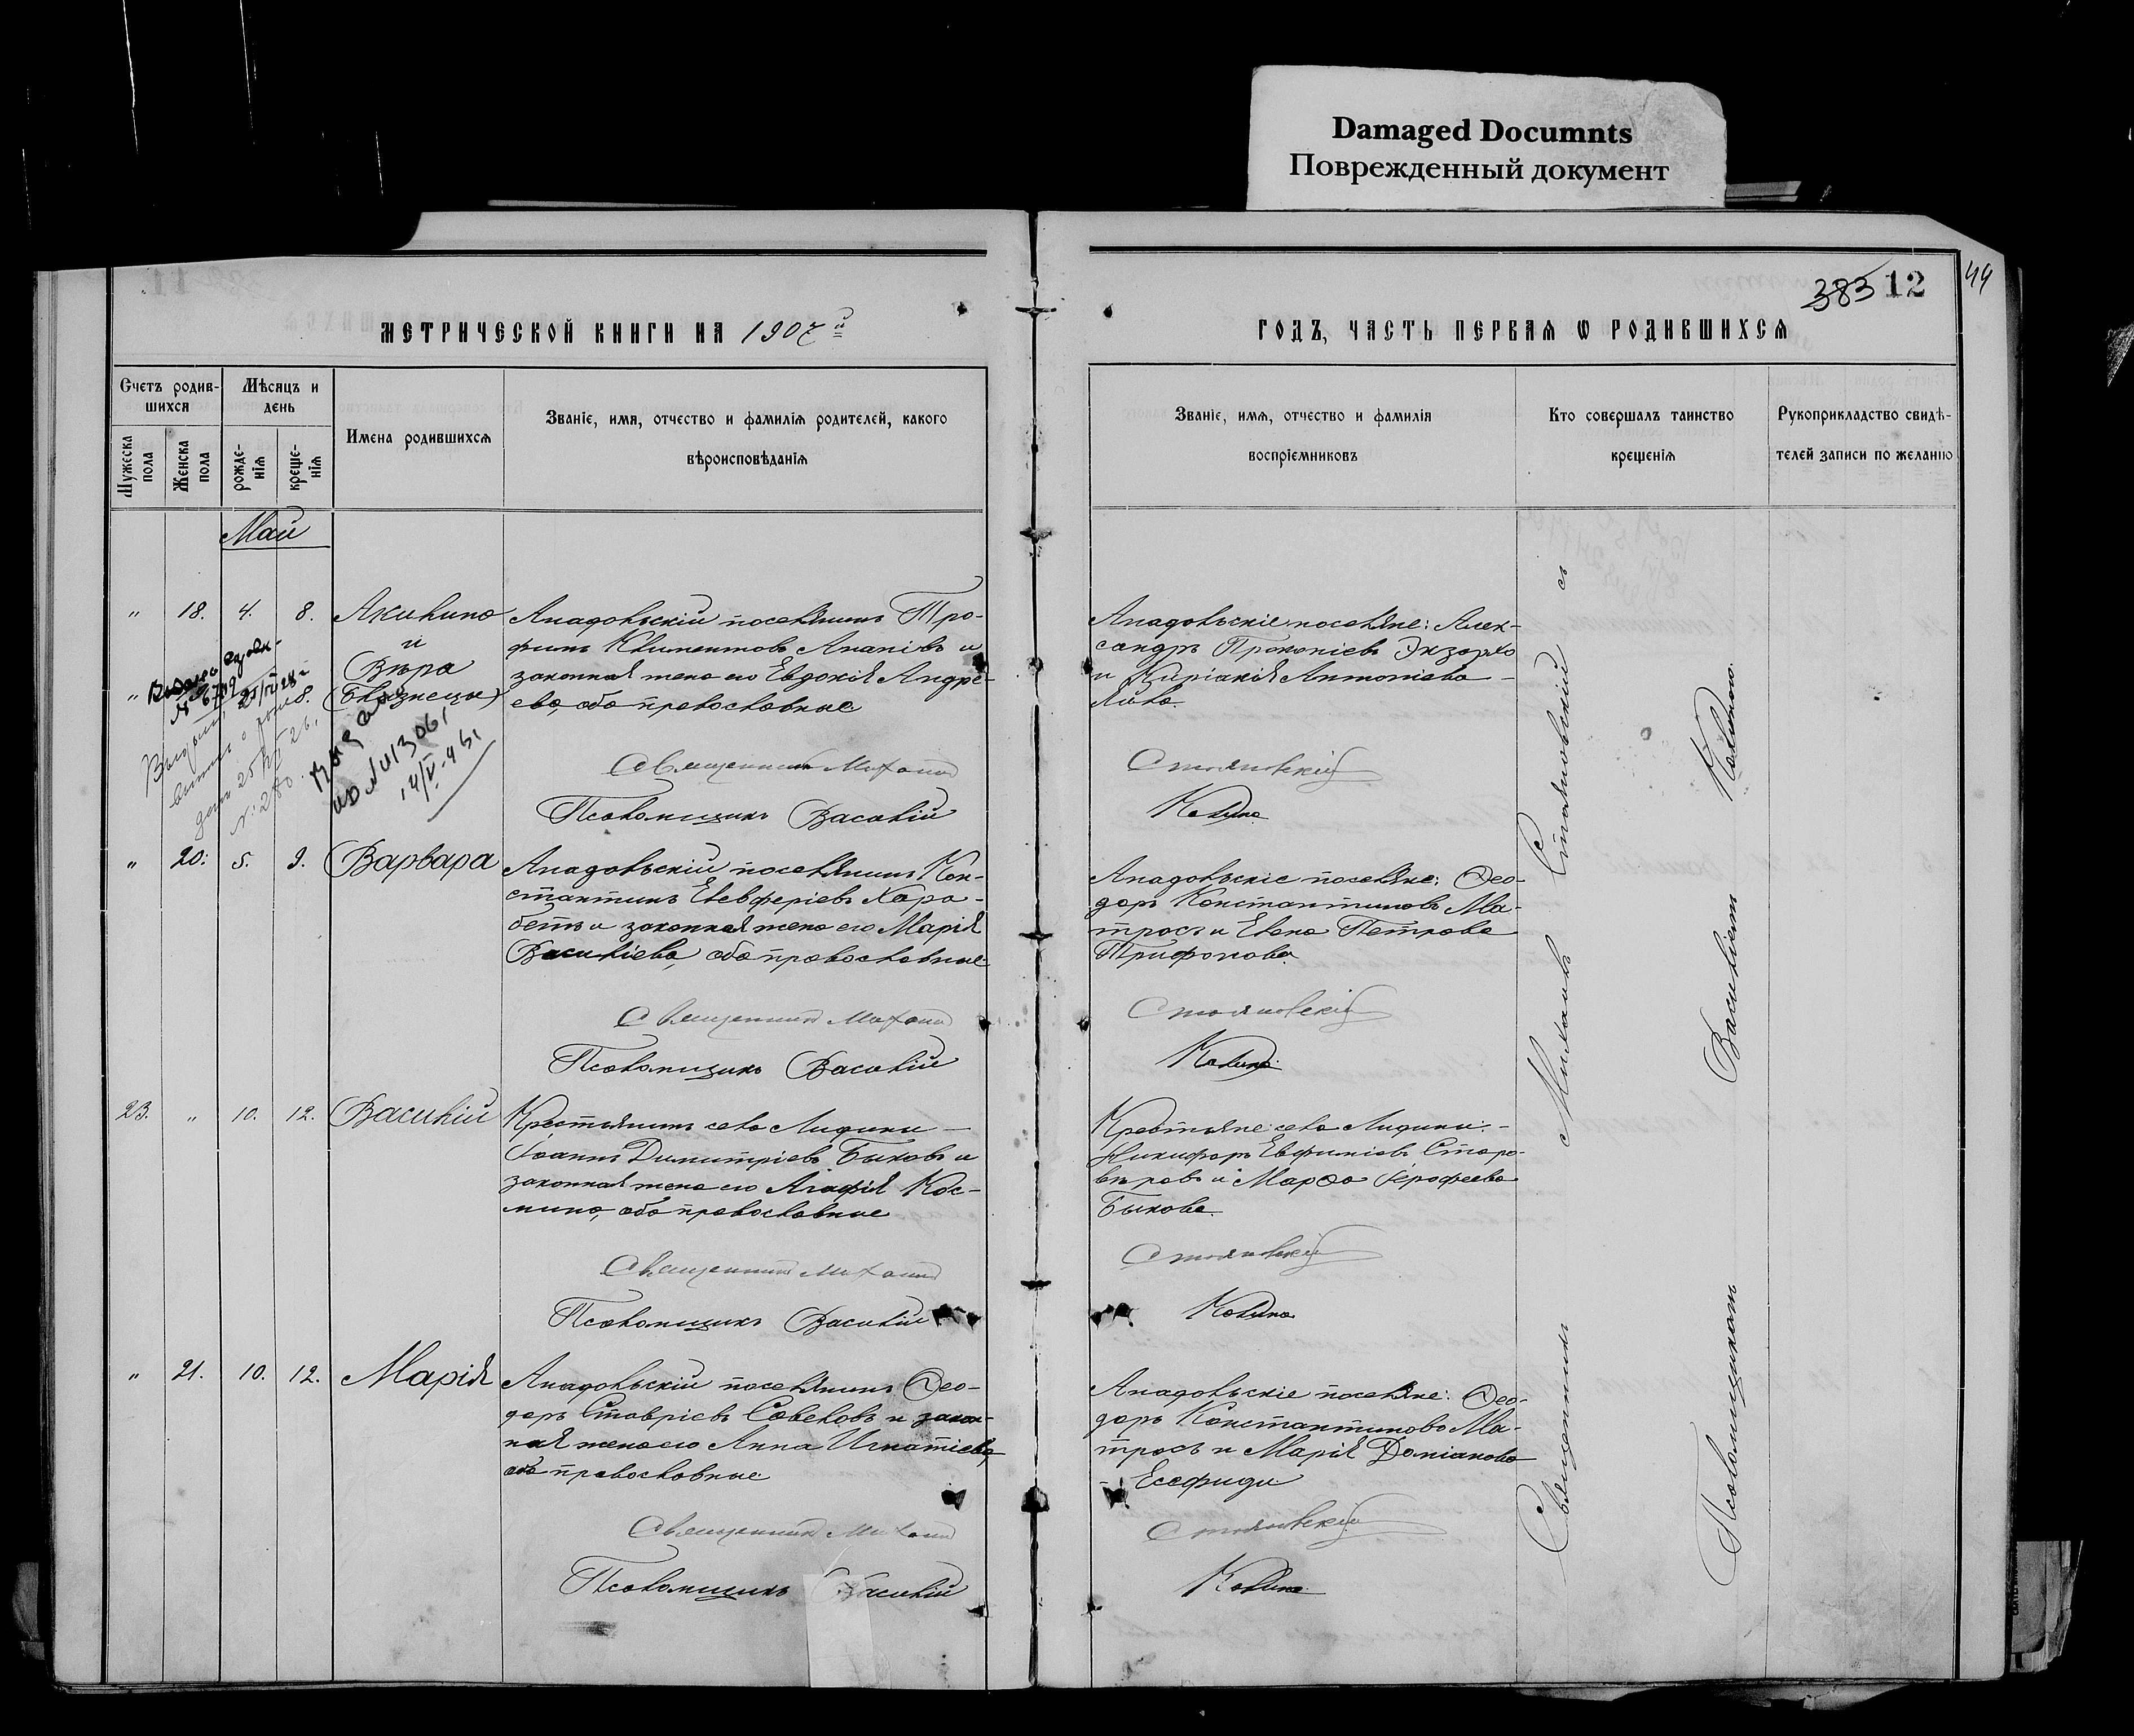 Damaged Documnts
Поврежденный документ
383 12
44
МЕТРИЧЕСКОЙ КНИГИ НА 1907й
ГОДЪ, ЧАСТЬ ПЕРВАЯ Ѡ РОДИВШИХСЯ
Счетъ родив-
шихся
Мѣсяцъ и
день
Мужеска
пола
Женска
пола
рожде-
нія
креще-
нія
Имена родившихся
Званіе, имя, отчество и фамилія родителей, какого
вѣроисповѣданія
Званіе, имя, отчество и фамилія
воспріемниковъ
Кто совершалъ таинство
крещенія
Рукоприкладство свидѣ-
телей записи по желанію
Май
" 18. 4. 8. Акилина
и
Вѣра
" 8. (близнецы)
Анадольскій поселянинъ Тро-
фимъ Климентовъ Ананьевъ и
законная жена его Евдокія Андре-
ева, оба православные
Священникъ Михаилъ
Псаломщикъ Василій
Анадольскіе поселяне: Алек-
сандръ Прокопіевъ Экзархо
и Киріакія Антоніева
Стояновскій
Калина
" 20. 5. 9. Варвара
Анадольскій поселянинъ Кон-
стантинъ Елевферіевъ Хара-
беть и законная жена его Марія
Василіева, оба православные
Священникъ Михаилъ
Псаломщикъ Василій
Анадольскіе поселяне: Ѳео-
доръ Константиновъ Ма-
тросъ и Елена Петрова
Трифонова.
Стояновскій
Калина
23. " 10. 12. Василій
Крестьянинъ села Лидины
Іоаннъ Димитріевъ Быковъ и
законная жена его Агафія Кос-
мина, оба православные
Священникъ Михаилъ
Псаломщикъ Василій
Крестьяне села Лидины:
Никифоръ Евфиміевъ Старо-
вѣровъ и Марѳа Іерофеева
Быкова.
Стояновскій
Калина
" 21. 10. 12. Марія
Анадольскій поселянинъ Ѳео-
доръ Ставріевъ Савеловъ и закон-
ная жена его Анна Игнатіева,
оба православные
Священникъ Михаилъ
Псаломщикъ Василій
Анадольскіе поселяне: Ѳео-
доръ Константиновъ Ма-
тросъ и Марія Даміанова
Стояновскій
Калина
Священникъ Михаилъ Стояновскій съ
Псаломщикомъ Василіемъ Калиною.